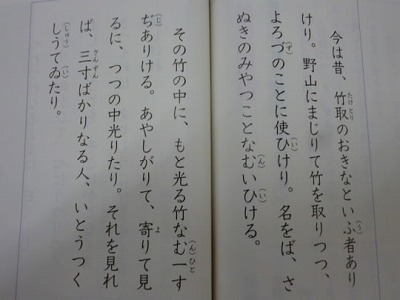 今は昔、竹取(たけとり)のおきなといふ(う)者あり
けり。野山にまじりて竹を取りつつ、
よろづ(ず)のことに使ひ(い)けり。名をば、さ
ぬきのみやつことなむ(ん)いひ(い)ける。
その竹の中に、もと光る竹なむ(ん)一(ひと)す
ぢ(じ)ありける。あやしがりて、寄(よ)りて見
るに、つつの中光りたり。それを見れ
ば、三寸(さんずん)ばかりなる人、いとうつく
しう(しゅう)てゐ(い)たり。